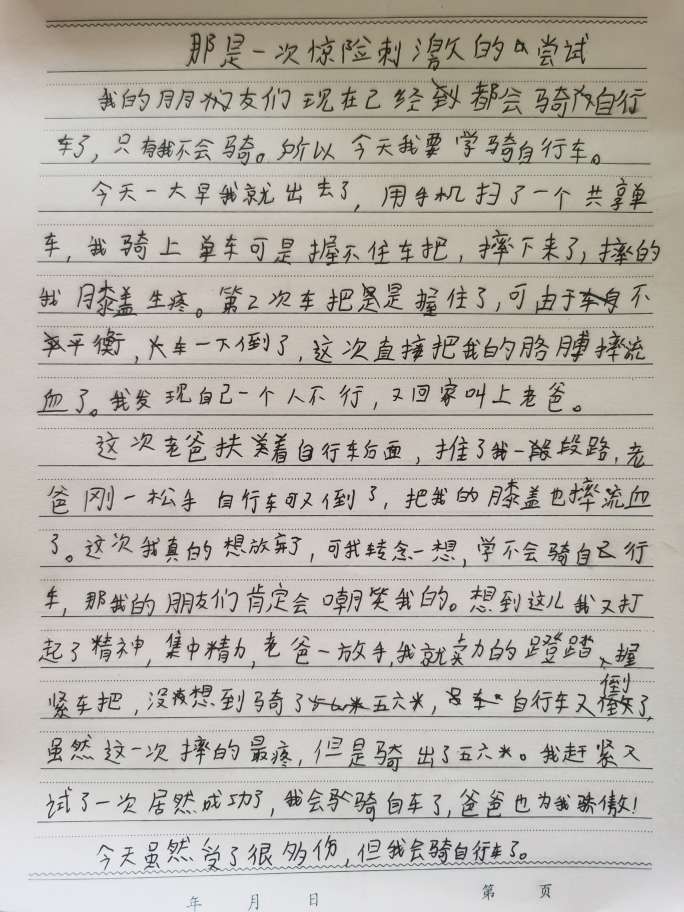 那是一次惊险刺激的尝试
我的朋友们现在已经到都会骑自行
车了，只有我不会骑。所以今天我要学骑自行车。
今天一大早我就出去了，用手机扫了一个共享单
车，我骑上单车可是握不住车把，摔下来了，摔的
我膝盖生疼。第2次车把是握住了，可由于不
平衡，车一下倒了，这次直接把我的胳膊摔流
血了。我发现自己一个人不行，又回家叫上老爸。
这次老爸扶着自行车后面，推了我一段路，老
爸刚一松手自行车又倒了，把我的膝盖也摔流血
了。这次我真的想放弃了，可我转念一想，学不会骑自行
车，那我的朋友们肯定会嘲笑我的。想到这儿我又打
起了精神，集中精力，老爸一放手，我就卖力的蹬踏、握
紧车把，没想到骑了五六米，自行车又倒了，
虽然这一次摔的最疼，但是骑出了五六米。我赶紧又
试了一次居然成功了，我会骑自车了，爸爸也为我骄傲！
今天虽然受了很多伤，但我会骑自行车了。
年 月 日 第 页